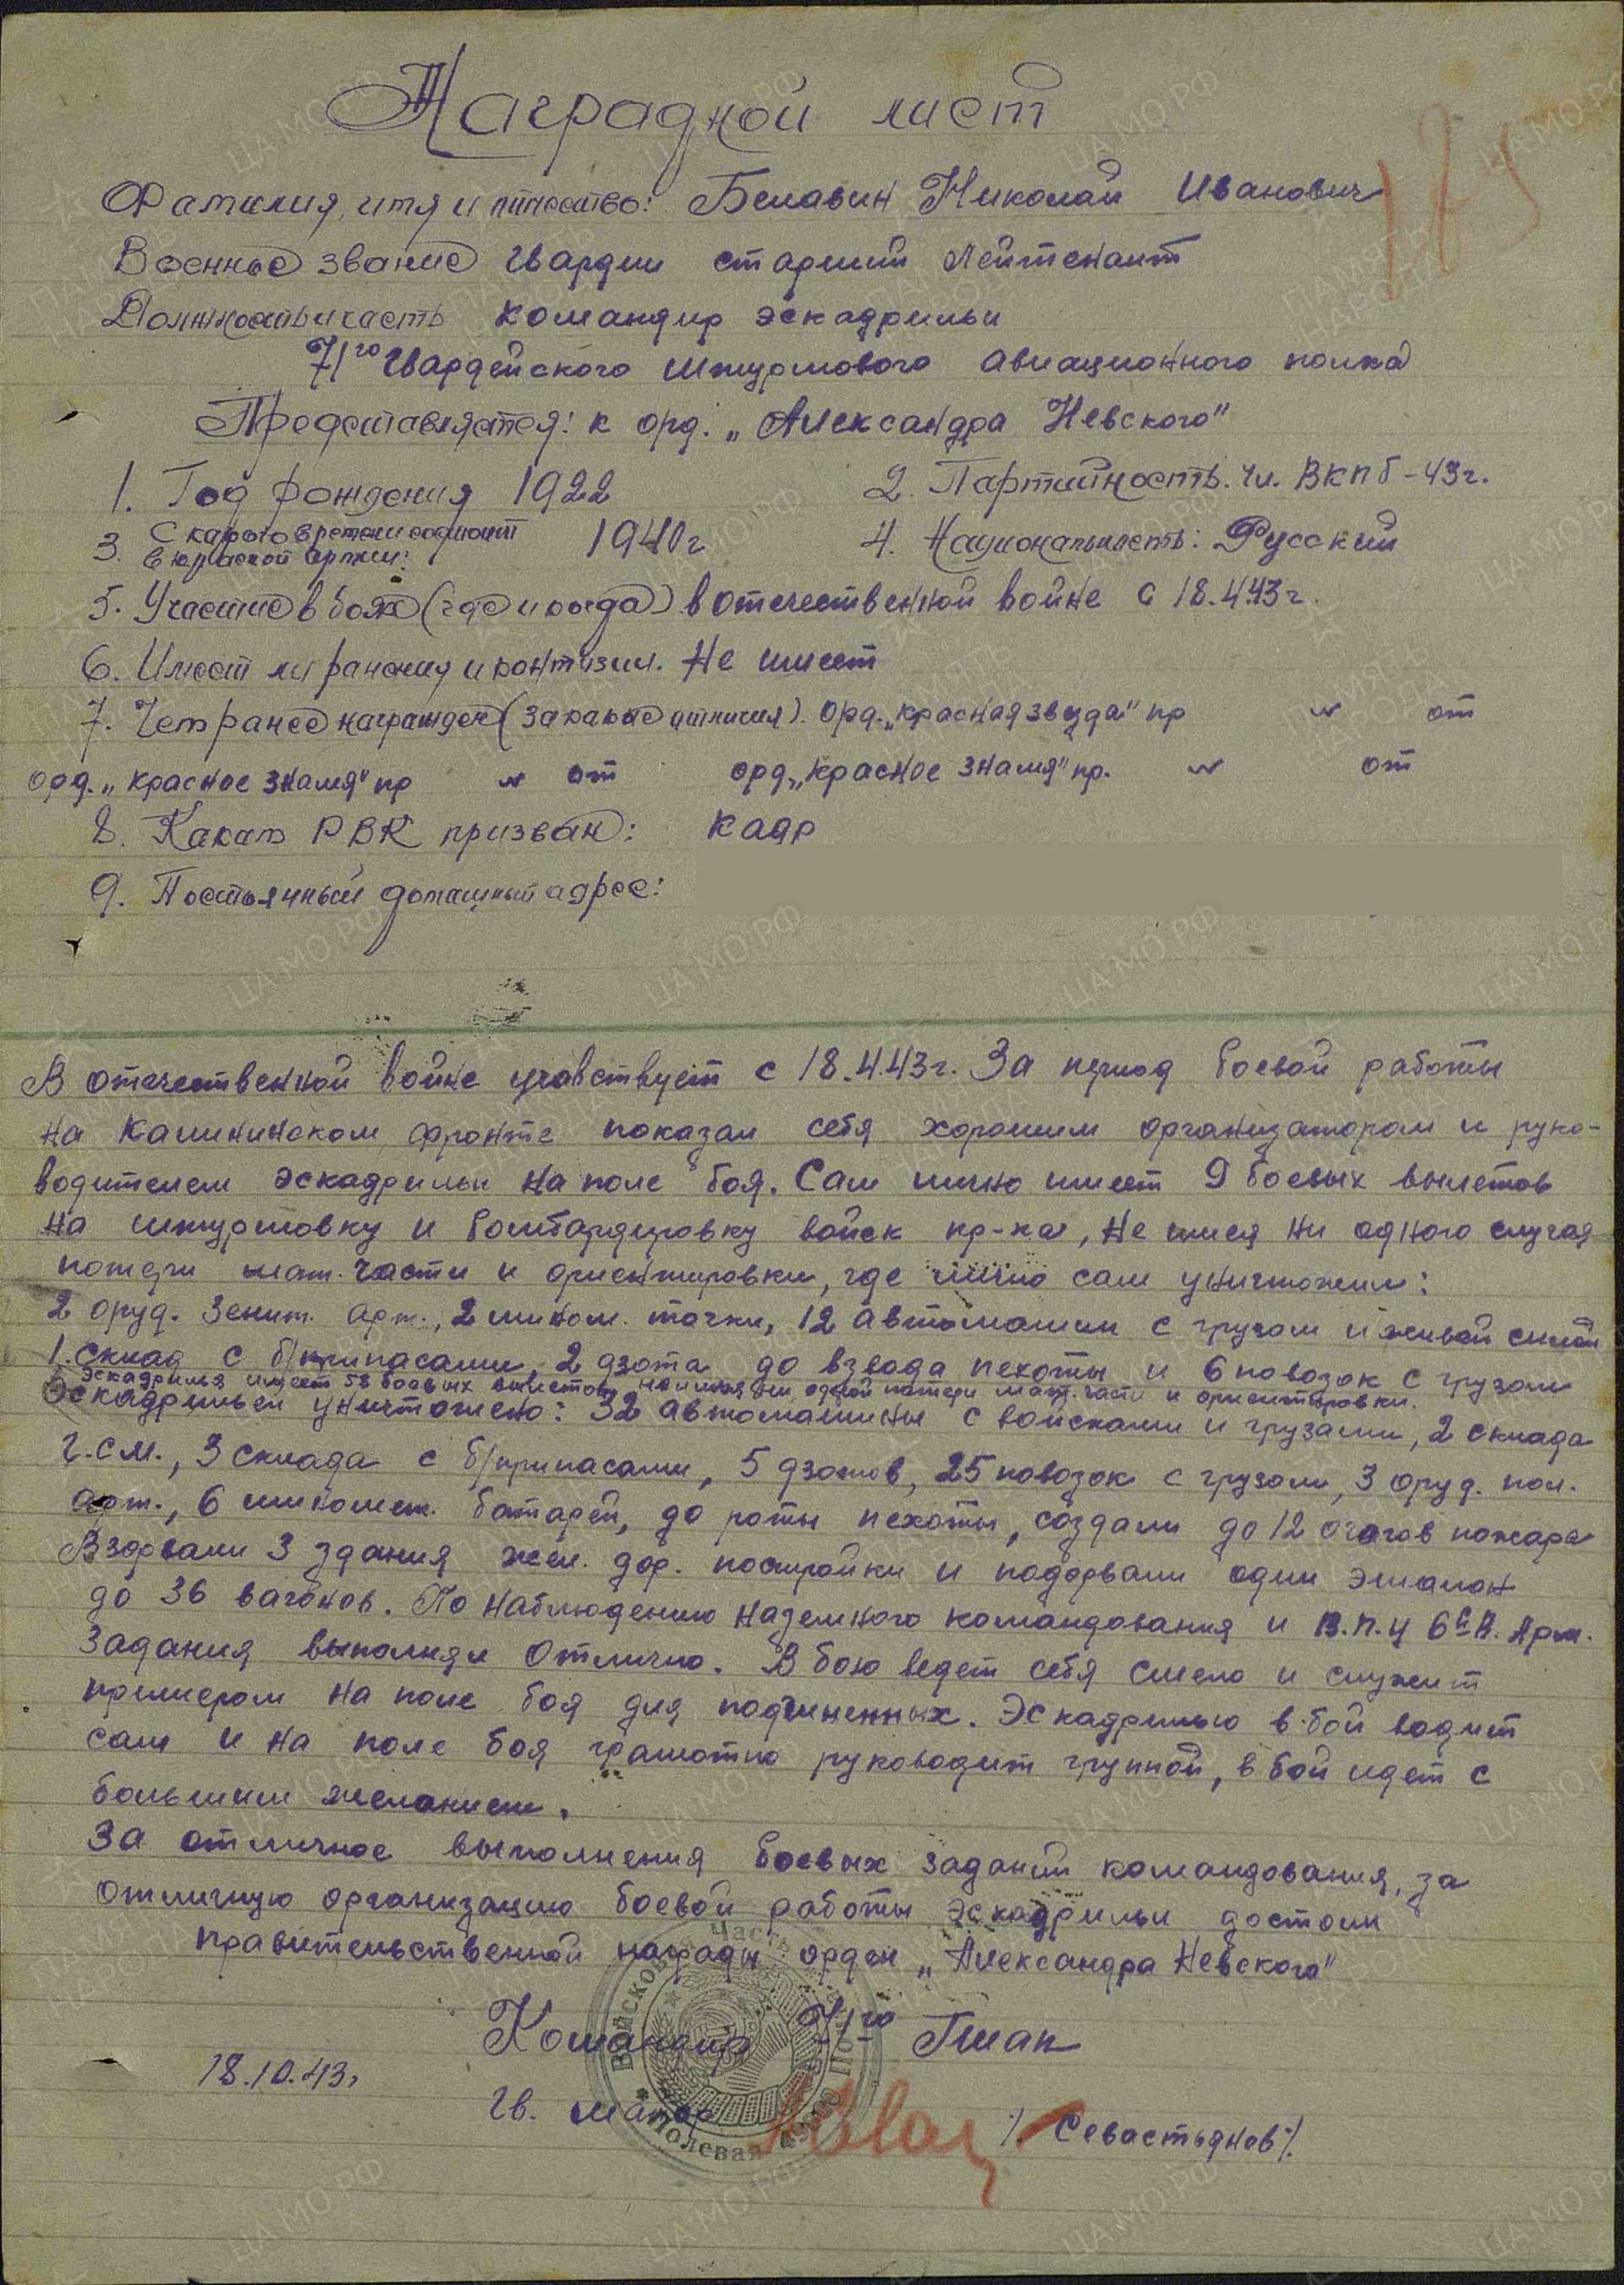 Наградной лист
179
Фамилия, имя и отчество: Белавин Николай Иванович
Военное звание гвардии старший лейтенант
Должность и часть командир эскадрильи
71го Гвардейского штурмового авиационного полка
Представляется: к орд. „Александра Невского"
1. Год рождения 1922
2. Партийность. чл. ВКПб-43г.
3. С какого времени состоит в красной армии: 1940г
4. Национальность: Русский
5. Участие в боях (где и когда) в отечественной войне с 18.4.43г.
6. Имеет ли ранения и контузии. Не имеет
7. Чем ранее награжден (за какие отличия). Орд. „красная звезда" пр № от
орд. „красное знамя" пр № от орд. „красное знамя" пр. № от
8. Каким РВК призван: кадр
9. Постоянный домашний адрес:
В отечественной войне учавствует с 18.4.43г. За период боевой работы
на Калининском фронте показал себя хорошим организатором и руко-
водителем эскадрильи на поле боя. Сам лично имеет 9 боевых вылетов
на штурмовку и бомбардировку войск пр-ка, не имея ни одного случая
потери мат. части и ориентировки, где лично сам уничтожил:
2 оруд. зенит. арт., 2 мином. точки, 12 автомашин с грузом и живой силой
1. склад с б/припасами 2 дзота до взвода пехоты и 6 повозок с грузом
Эскадрилья имеет 58 боевых вылетов не имея ни одной потери мат. части и ориентировки.
Эскадрильей уничтожено: 32 автомашины с войсками и грузами, 2 склада
г.с.м., 3 склада с б/припасами, 5 дзотов, 25 повозок с грузом, 3 оруд. пол.
арт., 6 миномет. батарей, до роты пехоты, создали до 12 очагов пожара
Взорвали 3 здания жел. дор. постройки и подорвали один эшалон
до 36 вагонов. По наблюдению наземного командования и В.П.У 6й В. Арм.
Задания выполнял отлично. В бою ведет себя смело и служит
примером на поле боя для подчиненных. Эскадрилью в бой водит
сам и на поле боя грамотно руководит группой, в бой идет с
большим желанием.
За отличное выполнения боевых заданий командования, за
отличную организацию боевой работы эскадрильи достоин
правительственной награды орден „Александра Невского"
Командир 71го Гшап
18.10.43г
Гв. майор /Севастьянов/.
Войсковая Часть Полевая Почта